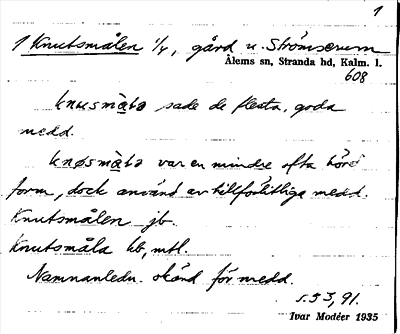 1
1 Knutsmålen 1/4, gård u. Strömserum
Ålems sn, Stranda hd, Kalm. l.
608
knusmå̀la sade de flesta, goda
medd.
knøsmå̀la var en mindre ofta hörd
form, dock använd av tillförlitliga medd.
Knutsmålen jb.
Knutsmåla hb, mtl.
Namnanledn. okänd för medd.
s. 53, 91.
Ivar Modéer 1935